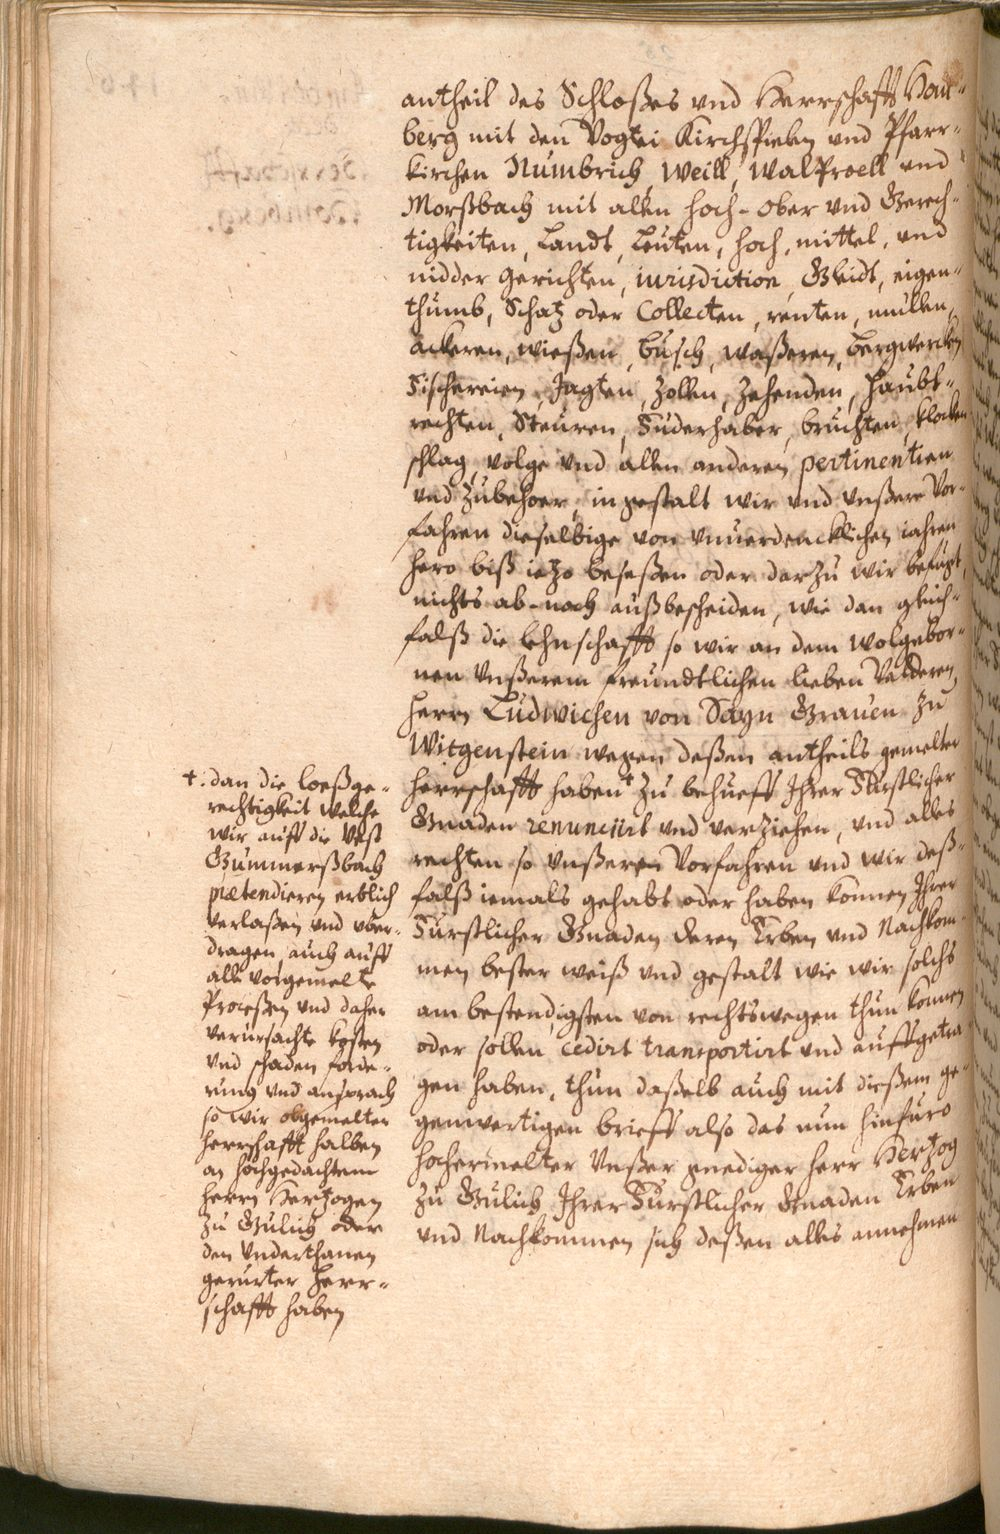 antheil des Schloßes vnd Herrschafft Hom-
berg mit den Vogtei Kirchspielen vnd Pfarr-
kirchen Numbrich, Weill, Walproell vnd
Morßbach mit allen hoch- ober vnd Gerech-
tigkeiten, Landt, Leuten, hoch, mittel, vnd
nidder gerichten, iurisdiction, Gleidt, eigen-
thumb, Schatz oder Collecten, renten, mullen,
ackeren, wießen, busch, waßeren, bergwercken
Fischereien, Jagten, Zollen, Zehenden, haubt-
rechten, Steuren, Fuderhaber, bruchten, klocken
schlag, volge vnd allen anderen pertinentien
vnd Zubehoer, ingestalt wir vnd vnßere Vor-
fahren dieselbige von vnuerdencklichen iahren
hero biß ietzo beseßen oder darzu wir befugt,
nichts ab- noch außbescheiden, wie dan gleich-
falß die lehnschafft so wir an dem wolgebor-
nen Vnßerem freundtlichen lieben Vetteren,
Herrn Ludwichen von Sayn Grauen zu
Witgenstein wegen deßen antheils gemelter
herrschafft haben † zu behueff Ihrer Furstlicher
Gnaden renunciirt vnd verziehen, vnd alles
rechten so vnßeren Vorfahren vnd wir deß-
falß iemals gehabt oder haben konnen Ihrer
Furstlicher Gnaden deren Erben vnd Nachkom-
men bester weiß vnd gestalt wie wir solchs
am bestendigsten von rechtswegen thun konnen
oder sollen cedirt transportirt vnd auffgetra-
gen haben, thun daßelb auch mit dießem ge-
genwertigen brieff also das nun hinfuro
hochermelter Vnßer gnediger herr Hertzog
zu Gulich Ihrer Furstlicher Gnaden Erben
vnd Nachkommen sich deßen alles annehmen
†. dan die loeßge-
rechtigkeit welche
wir auff die Vest
Gummerßbach
prætendieren erblich
verlaßen vnd vber-
dragen, auch auff
alle vorgemelte
Proceßen vnd daher
verursachte kosten
vnd schaden forde-
rung vnd ansprach
so wir obgemelter
herrschafft halben
an hochgedachtem
herrn Hertzogen
zu Gulich oder
den Vnderthanen
gerurter herr-
schafft haben